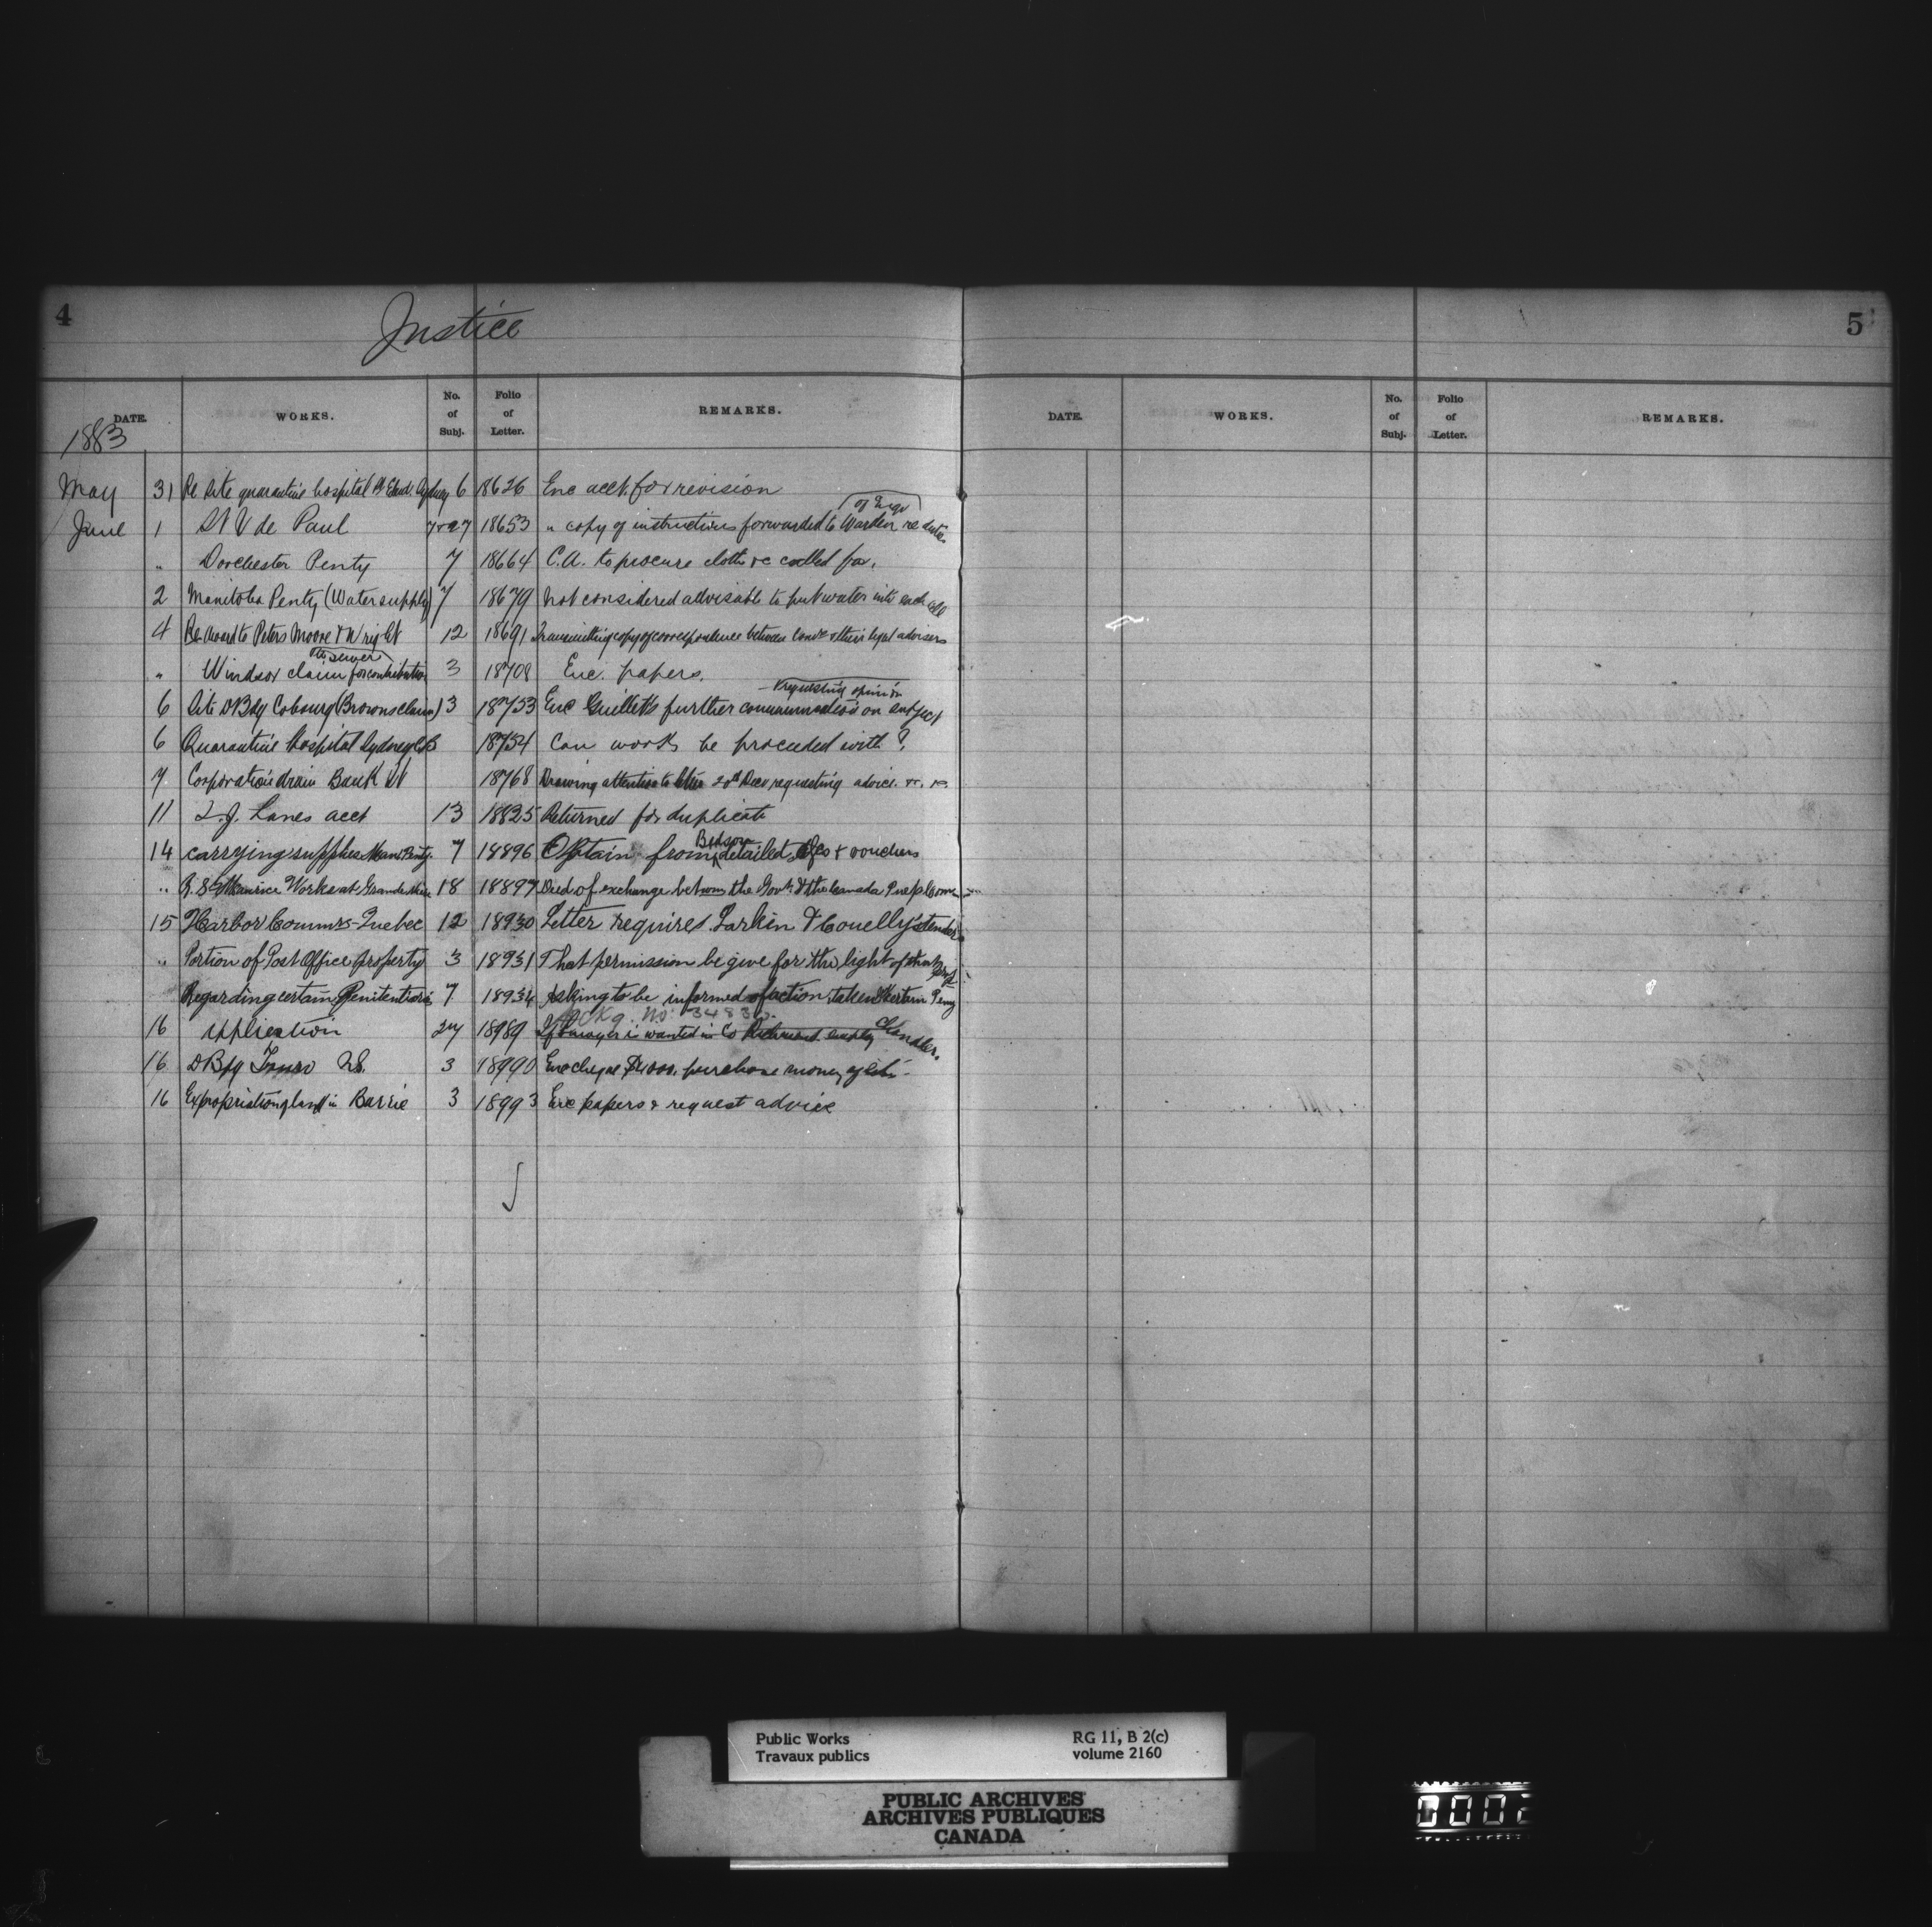 4
Justice
5
DATE. WORKS. No. of Subj. Folio of Letter. REMARKS.
DATE. WORKS. No. of Subj. Folio of Letter. REMARKS.
1883
May 31 Re Site quarantine hospital Sydney 6 18626 Enc acct for revision
June 1 St V de Paul 7 & 27 18653 " copy of instructions forwarded to Warden re
" Dorchester Penty 7 18664 C.A. to procure cloth &c called for.
2 Manitoba Penty (Water supply) 7 18679 Not considered advisable to put water into each cell
4 Re Award to Peters Moore & Wright 12 18691 Transmitting copy of correspondence between & their legal advisers
" Windsor claim for contribution to sewer 3 18708 Enc. papers.
6 Site P Bdg Cobourg (Browns claim) 3 18733 Enc Guilletts further communication on subject requesting opinion
6 Quarantine Hospital Sydney CB 18734 Can work be proceeded with?
7 Corporation drain Bank 18768 Drawing attention to letter 20th Decr requesting advice. &c. &c.
11 T.J. Lanes acct 13 18825 Returned for duplicate
14 Carrying supplies Man Penty. 7 18896 Obtain from Bedson detailed & vouchers
" R. St Maurice Works at Grande 18 18897 Deed of exchange between the Govt & the Canada
15 Harbor Commrs - Quebec 12 18930 Letter requires Larkin & Conelly's tender
" Portion of Post Office property 3 18931 That permission be give for the light of
Regarding certain Penitentiaries 7 18934 Asking to be informed of action taken
16 Application 27 18989 If lawyer is wanted in Co Richmond employ Chandler.
16 P Bdg Truro NS. 3 18990 Enc cheque $4000. purchase money of site
16 Expropriation of land in Barrie 3 18993 Enc papers & request advice
Public Works RG 11, B 2(c)
Travaux publics volume 2160
PUBLIC ARCHIVES
ARCHIVES PUBLIQUES
CANADA
0002